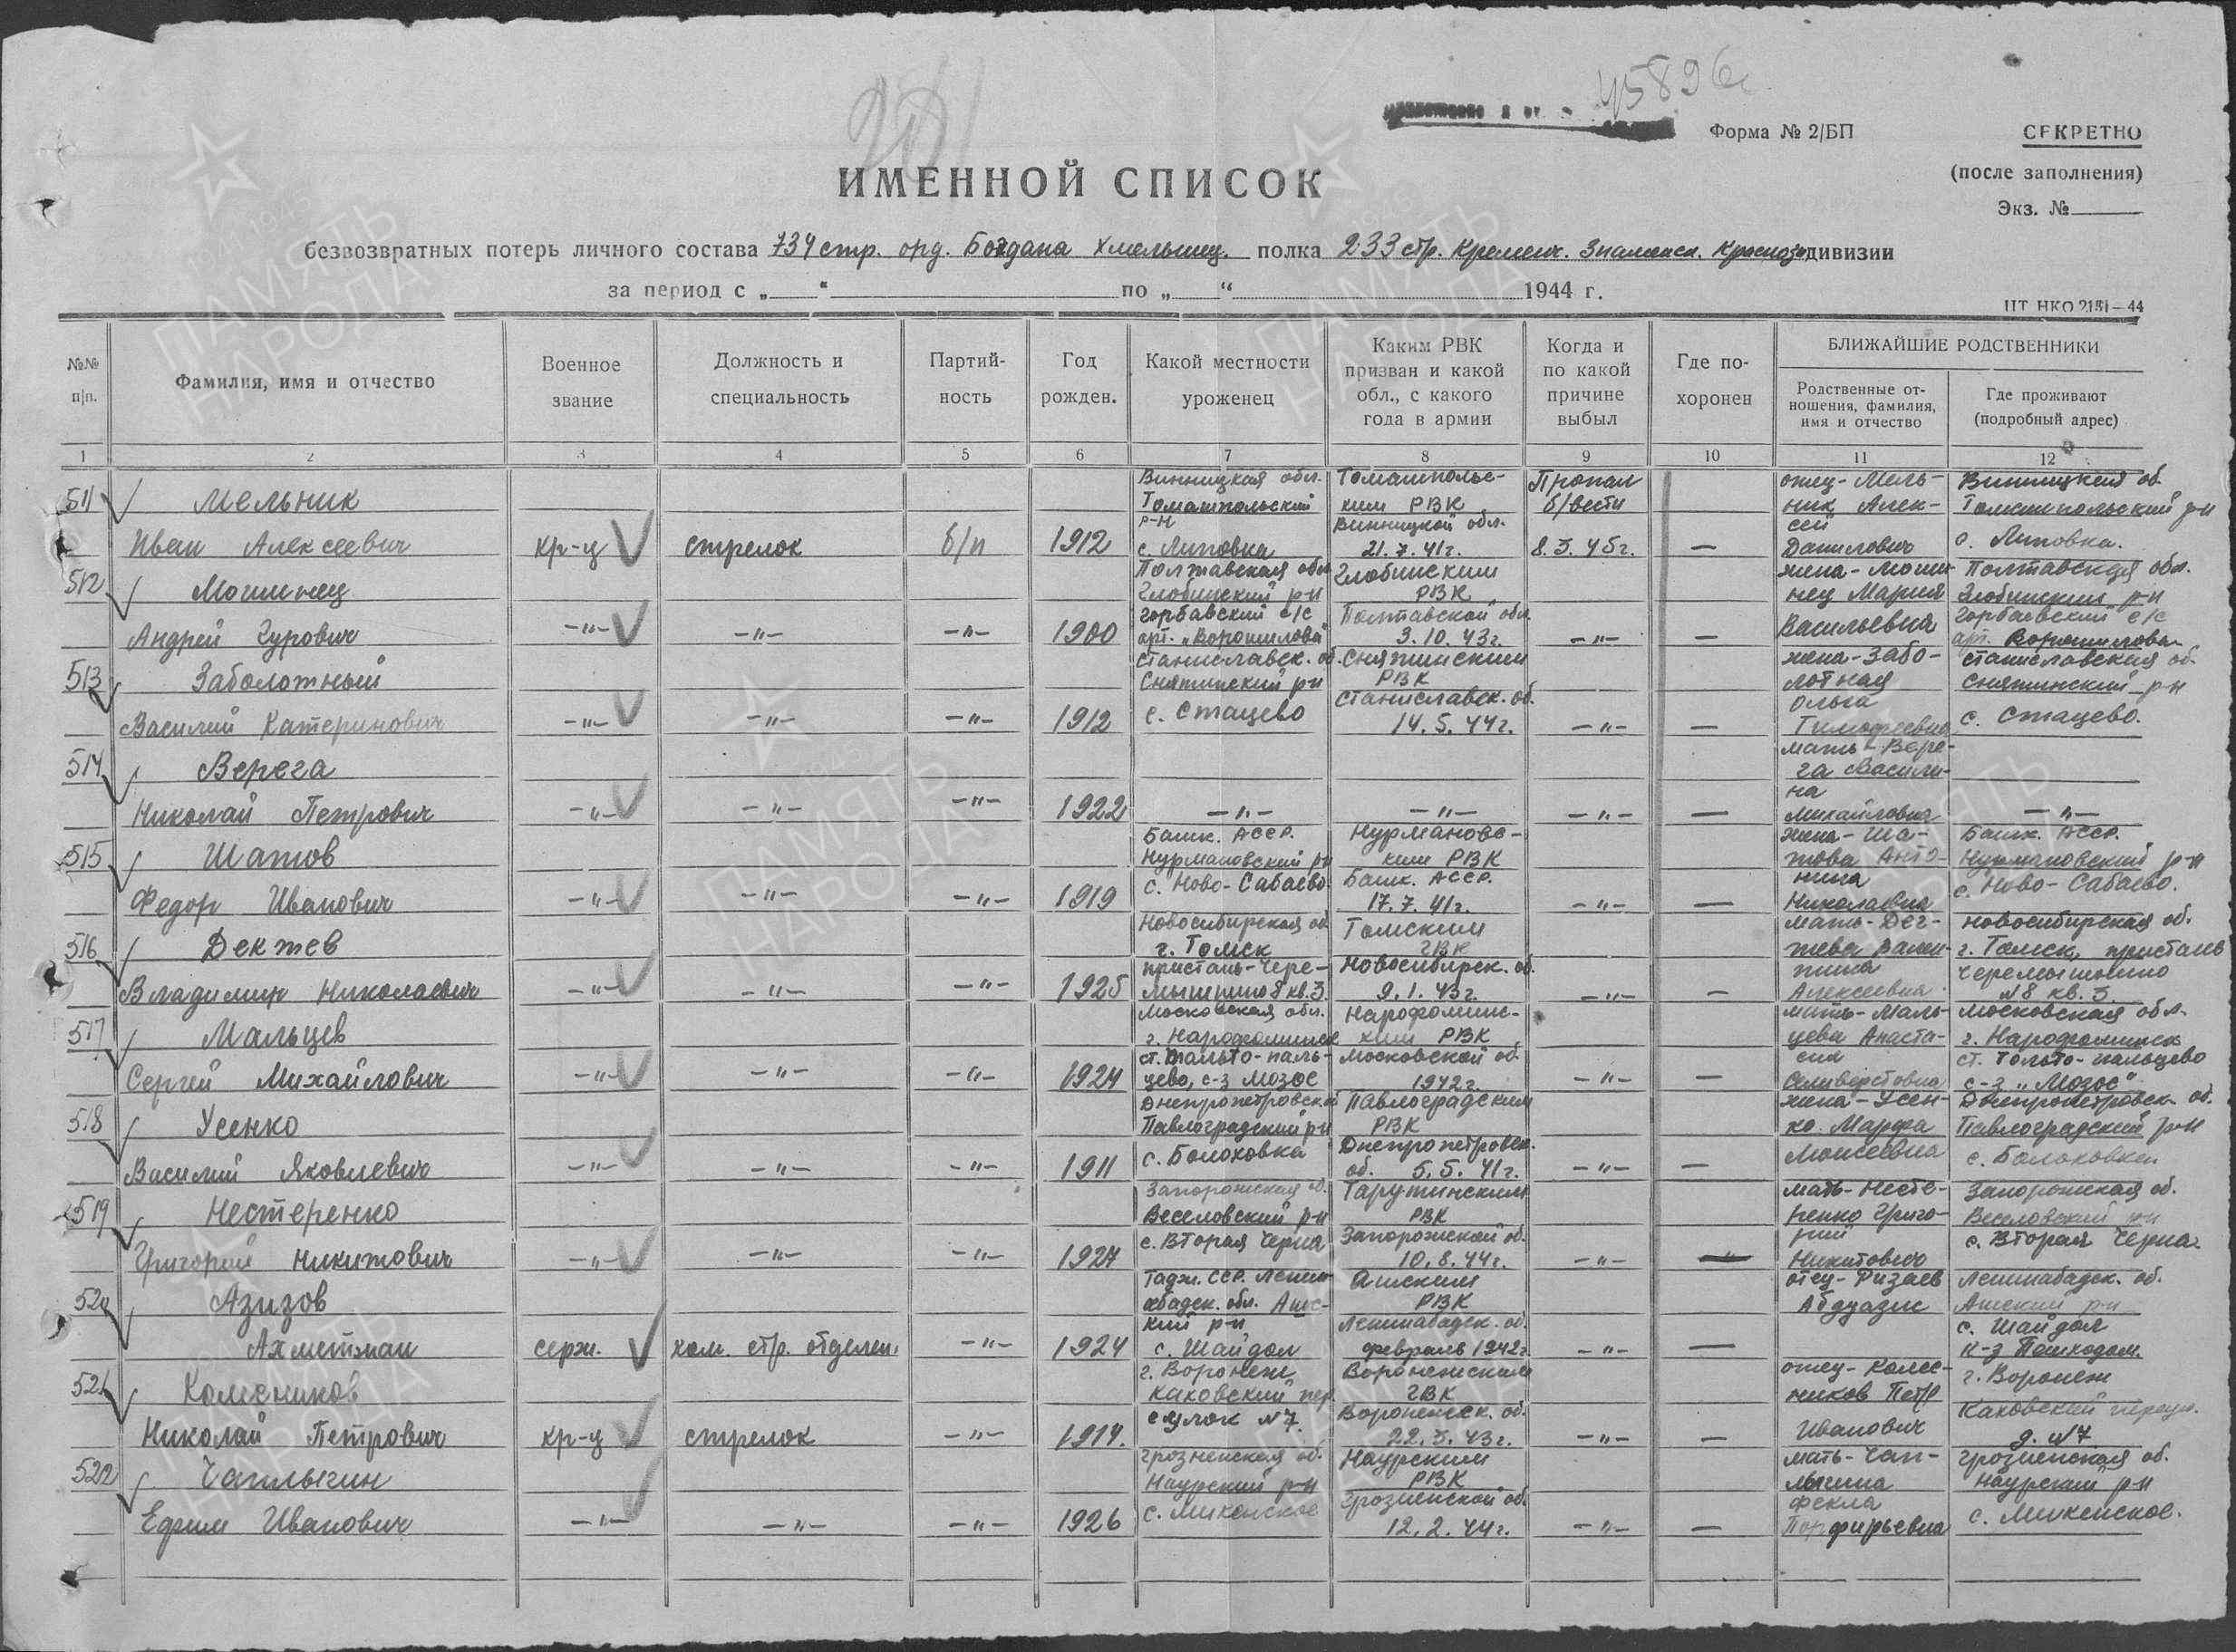 45896с
Форма № 2/БП
СЕКРЕТНО
(после заполнения)
Экз. №
ИМЕННОЙ СПИСОК
безвозвратных потерь личного состава 734 стр. орд. Богдана Хмельниц. полка 233 стр. Кременч. Знаменск. Краснозн. дивизии
за период с „ “ по „ “ 1944 г.
ЦТ НКО 2151—44
№№ п|п.
Фамилия, имя и отчество
Военное звание
Должность и специальность
Партийность
Год рожден.
Какой местности уроженец
Каким РВК призван и какой обл., с какого года в армии
Когда и по какой причине выбыл
Где похоронен
БЛИЖАЙШИЕ РОДСТВЕННИКИ
Родственные отношения, фамилия, имя и отчество
Где проживают (подробный адрес)
1 2 3 4 5 6 7 8 9 10 11 12
511 Мельник
Иван Алексеевич
кр-ц стрелок б/п 1912
Винницкая обл.
Томашпольский
р-н
с. Липовка
Томашпольс-
ким РВК
Винницкой обл.
21.7.41г.
Пропал
б/вести
8.3.45г. —
отец - Мель-
ник Алек-
сей
Данилович
Винницкая об.
Томашпольский р-н
с. Липовка.
512 Могилнец
Андрей Гурович
—"— —"— —"— 1900
Полтавская обл.
Глобинский р-н
Горбавский с/с
арт. „Ворошилова"
Глобинским
РВК
Полтавской обл.
3.10.43г.
—"— —
жена -
нец Мария
Васильевна
Полтавская обл.
Глобинский р-н
Горбавский с/с
арт. Ворошилова
513 Заболотный
Василий Катеринович
—"— —"— —"— 1912
Станиславск. об.
Снятинский р-н
с. Стацево
Снятинским
РВК
Станиславск. об.
14.5.44г.
—"— —
жена - Забо-
лотная
Ольга
Тимофеевна
Станиславская об.
Снятинский р-н
с. Стацево.
514 Верега
Николай Петрович
—"— —"— —"— 1922
—"— —"— —"— —
мать - Вере-
га Васили-
на
Михайловна
—"—
515 Шатов
Федор Иванович
—"— —"— —"— 1919
Башк. АССР.
Нурмановский р-н
с. Ново-Сабаево
Нурмановс-
ким РВК
Башк. АССР.
17.7.41г.
—"— —
жена - Ша-
това Анто-
нина
Николаевна
Башк. АССР.
Нурмановский р-н
с. Ново-Сабаево.
516 Дектев
Владимир Николаевич
—"— —"— —"— 1925
Новосибирская об.
г. Томск
пристань-Чере-
мышино 8 кв.3
Томским
ГВК
Новосибирск. об.
9.1.43г.
—"— —
мать - Дег-
тева Вален-
тина
Алексеевна
Новосибирская об.
г. Томск, пристань
Черемышино
№8 кв. 3
517 Мальцев
Сергей Михайлович
—"— —"— —"— 1924
Московская обл.
г. Нарофоминск
ст. Тольто-паль-
цево, с-з Мозос
Нарофомин-
ким РВК
Московской об.
1942г.
—"— —
мать - Маль-
цева Анаста-
сия
Селиверстовна
Московская обл.
г. Нарофоминск
ст. Тольто-пальцево
с-з „Мозос"
518 Усенко
Василий Яковлевич
—"— —"— —"— 1911
Днепропетровской
Павлоградский р-н
с. Болоховка
Павлоградским
РВК
Днепропетровск.
об. 5.5.41г.
—"— —
жена - Усен-
ко Марфа
Моисеевна
Днепропетровск. об.
Павлоградский р-н
с. Болоховка
519 Нестеренко
Григорий Никитович
—"— —"— —"— 1927
Запорожская об.
Веселовский р-н
с. Вторая Черна
Тарутинским
РВК
Запорожской об.
10.8.44г.
—"— —
мать - Несте-
ренко Григо-
рий
Никитович
Запорожская об.
Веселовский р-н
с. Вторая Черна
520 Азизов
Ахметжан
серж. ком. стр. отделен. —"— 1924
Тадж. ССР. Ленин-
абадск. обл. Ашс-
кий р-н
с. Шайдол
Ашским
РВК
Ленинабадск. об.
февраль 1942г.
—"— —
отец - Ризаев
Абдуазис
Ленинабадск. об.
Ашский р-н
с. Шайдол
к-з Пошкодом.
521 Колесников
Николай Петрович
кр-ц стрелок —"— 1914.
г. Воронеж
Каховский пер.
еулок №7.
Воронежским
ГВК
Воронежск. об.
22.3.43г.
—"— —
отец - Колес-
ников Петр
Иванович
г. Воронеж
Каховский переул.
д. №7
522 Чаплыгин
Ефим Иванович
—"— —"— —"— 1926
Грозненская об.
Наурский р-н
с. Микенское
Наурским
РВК
Грозненской об.
12.2.44г.
—"— —
мать - Чап-
лыгина
Фекла
Порфирьевна
Грозненская об.
Наурский р-н
с. Микенское.
ПАМЯТЬ
НАРОДА